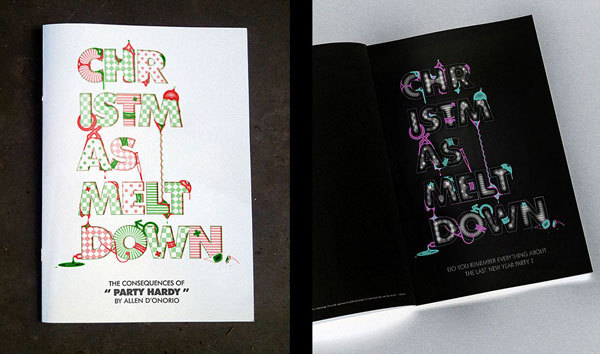 CHR
ISTM
AS
MELT
DOWN.
THE CONSEQUENCES OF
“ PARTY HARDY ”
BY ALLEN D'ONORIO
CHR
ISTM
AS
MELT
DOWN.
DO YOU REMEMBER EVERYTHING ABOUT
THE LAST NEW YEAR PARTY ?